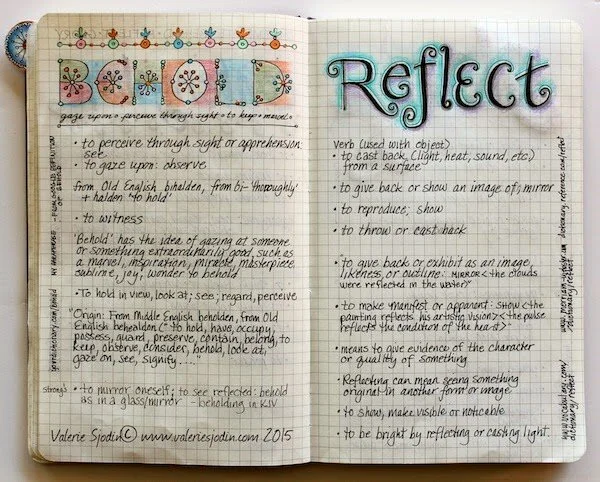 BEHOLD
gaze upon • perceive through sight • to keep • marvel
• to perceive through sight or apprehension:
see
• to gaze upon: observe
from Old English bihalden, from bi- 'thoroughly'
+ halden 'to hold'
• to witness
"Behold" has the idea of gazing at someone
or something extraordinarily good, such as
a marvel, inspiration, miracle, masterpiece
sublime, joy, wonder to behold
• To hold in view, look at; see; regard, perceive
"Origin: From Middle English beholden, from Old
English behealdon ("to hold, have, occupy,
possess, guard, preserve, contain, belong, to
keep, observe, consider, behold, look at,
gaze on, see, signify....."
strongs
• to mirror oneself; to see reflected: behold
as in a glass/mirror - beholding in KJV
Valerie Sjodin © www.valeriesjodin.com 2015
MY PARAPHRASE
Reflect
verb (used with object)
• to cast back (light, heat, sound, etc.)
from a surface
• to give back or show an image of; mirror
• to reproduce; show
• to throw or cast back
• to give back or exhibit as an image,
likeness, or outline: MIRROR <the clouds
were reflected in the water>
• to make manifest or apparent: SHOW <the
painting reflects his artistic vision> <the pulse
reflects the condition of the heart>
• means to give evidence of the character
or quality of something
• Reflecting can mean seeing something
original in another form or image
• to show, make visible or noticable
• to be bright by reflecting or casting light.
dictionary.reference.com/reflect
www.merriam-webster.com
dictionary/reflect
www.vocabulary.com/
dictionary/reflect